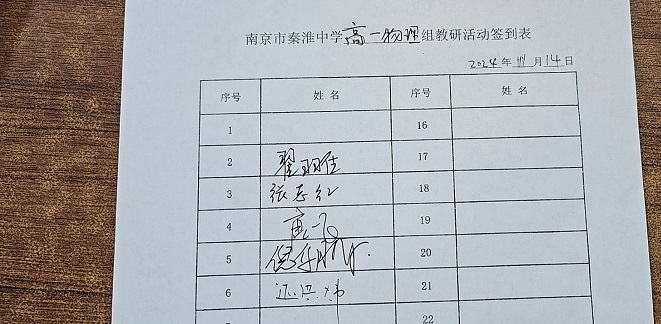 南京市秦淮中学高一物理组教研活动签到表
2024年 月14日
序号 姓名 序号 姓名
1 16
2 翟羽佳 17
3 张志红 18
4 19
5 20
6 21
22